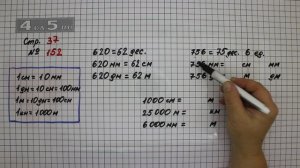 4 5
Стр. 37
№ 152
620 = 62 дес.
620 мм = 62 см
620 дм = 62 м
756 = 75 дес. 6 ед.
756 мм = см мм
756 = м дм
1 см = 10 мм
1 дм = 10 см = 100 мм
1 м = 10 дм = 100 см
1 км = 1000 м
1000 см = м
25 000 м = км
6 000 мм = м